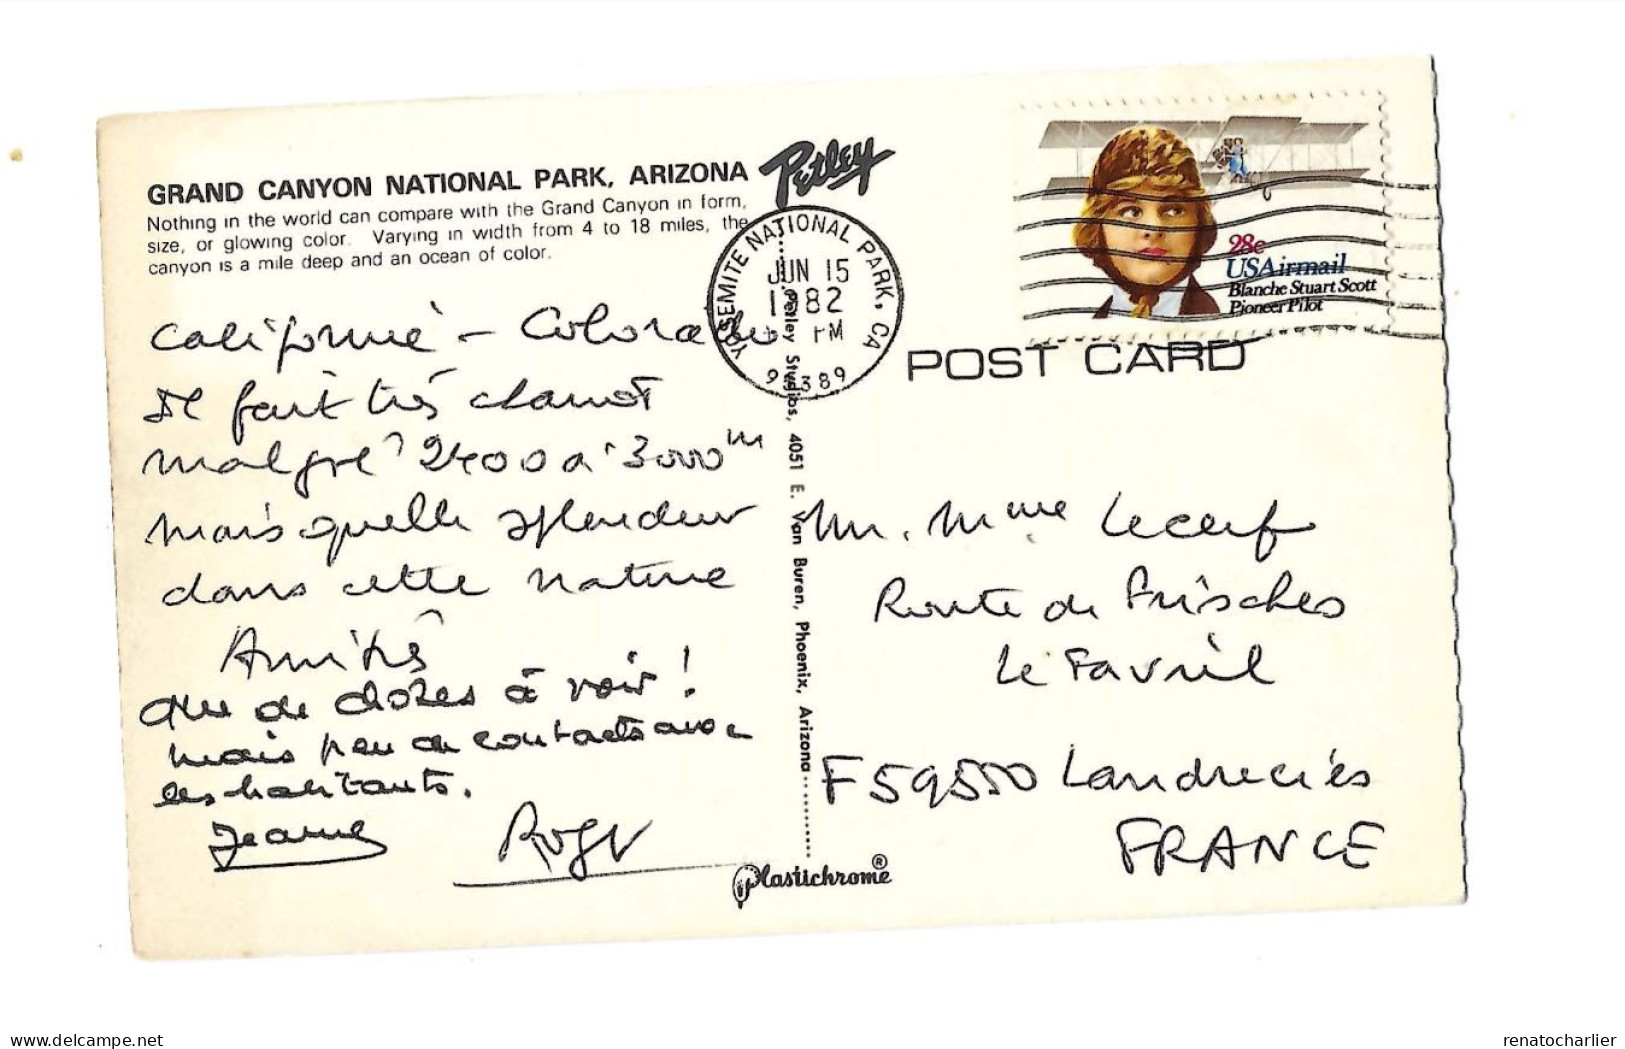 GRAND CANYON NATIONAL PARK, ARIZONA
Nothing in the world can compare with the Grand Canyon in form,
size, or glowing color. Varying in width from 4 to 18 miles, the
canyon is a mile deep and an ocean of color.
Petley
YOSEMITE NATIONAL PARK, CA
JUN 15
1982
PM
95389
28c
USAirmail
Blanche Stuart Scott
Pioneer Pilot
POST CARD
Californie - Colorado
Il fait très chaud
malgré 2400 à 3000 m
mais quelle splendeur
dans cette nature
Amitiés
que de choses à voir !
mais peu de contacts avec
les habitants.
Jeanne
Roger
Petley Studios, 4051 E. Van Buren, Phoenix, Arizona
Plastichrome®
Mr. Mme Lecerf
Route de Prisches
Le Favril
F 59550 Landrecies
FRANCE
renatocharlier